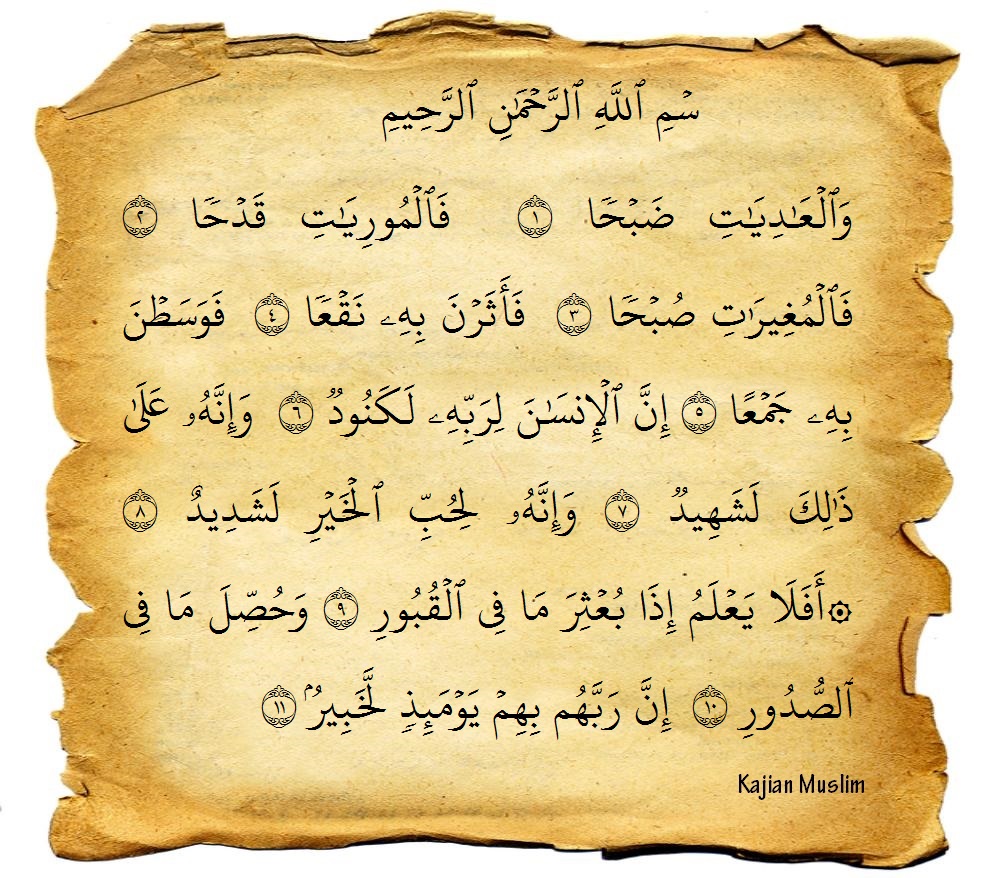 سْمِ ٱللَّهِ ٱلرَّحْمَٰنِ ٱلرَّحِيمِ
وَٱلْعَٰدِيَٰتِ ضَبْحًا ١ فَٱلْمُورِيَٰتِ قَدْحًا ٢
فَٱلْمُغِيرَٰتِ صُبْحًا ٣ فَأَثَرْنَ بِهِۦ نَقْعًا ٤ فَوَسَطْنَ
بِهِۦ جَمْعًا ٥ إِنَّ ٱلْإِنسَٰنَ لِرَبِّهِۦ لَكَنُودٌ ٦ وَإِنَّهُۥ عَلَىٰ
ذَٰلِكَ لَشَهِيدٌ ٧ وَإِنَّهُۥ لِحُبِّ ٱلْخَيْرِ لَشَدِيدٌ ٨
۞أَفَلَا يَعْلَمُ إِذَا بُعْثِرَ مَا فِى ٱلْقُبُورِ ٩ وَحُصِّلَ مَا فِى
ٱلصُّدُورِ ١٠ إِنَّ رَبَّهُم بِهِمْ يَوْمَئِذٍ لَّخَبِيرُۢ ١١
Kajian Muslim